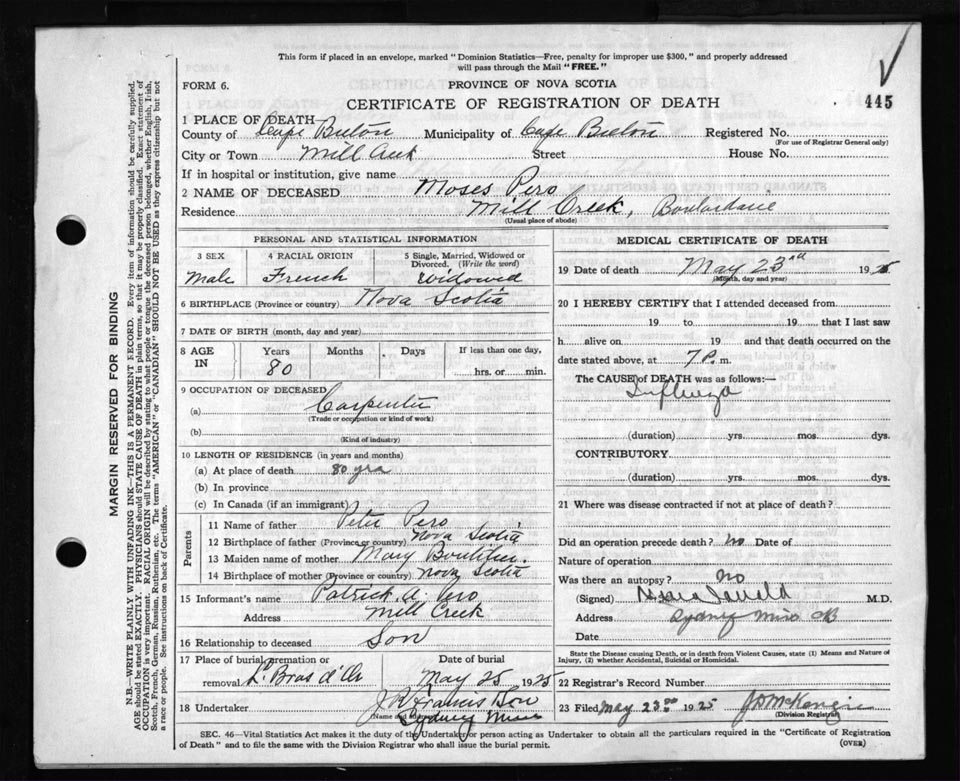 This form if placed in an envelope, marked "Dominion Statistics—Free, penalty for improper use $300," and properly addressed
will pass through the Mail "FREE."
FORM 6.
PROVINCE OF NOVA SCOTIA
CERTIFICATE OF REGISTRATION OF DEATH
445
1 PLACE OF DEATH—
County of Cape Breton Municipality of Cape Breton Registered No.
(For use of Registrar General only)
City or Town Mill Creek Street House No.
If in hospital or institution, give name
2 NAME OF DECEASED Moses Pero
Residence Mill Creek, Boulardarie
(Usual place of abode)
PERSONAL AND STATISTICAL INFORMATION
3 SEX 4 RACIAL ORIGIN 5 Single, Married, Widowed or
Divorced. (Write the word)
Male French Widowed
6 BIRTHPLACE (Province or country) Nova Scotia
7 DATE OF BIRTH (month, day and year)
8 AGE IN Years Months Days If less than one day,
80 hrs. or min.
9 OCCUPATION OF DECEASED
(a) Carpenter
(Trade or occupation or kind of work)
(b)
(Kind of industry)
10 LENGTH OF RESIDENCE (in years and months)
(a) At place of death 80 yrs
(b) In province
(c) In Canada (if an immigrant)
Parents
11 Name of father Peter Pero
12 Birthplace of father (Province or country) Nova Scotia
13 Maiden name of mother Mary Boutilier.
14 Birthplace of mother (Province or country) Nova Scotia
15 Informant's name Patrick A. Pero
Address Mill Creek
16 Relationship to deceased Son
17 Place of burial, cremation or Date of burial
removal L. Bras d'Or May 25 1925
18 Undertaker J. R. Francis Son
(Name and address)
Sydney Mines
MEDICAL CERTIFICATE OF DEATH
19 Date of death May 23rd 1925
(Month, day and year)
20 I HEREBY CERTIFY that I attended deceased from
19 to 19 , that I last saw
h alive on 19 and that death occurred on the
date stated above, at 7 P. m.
The CAUSE of DEATH was as follows:—
Influenza
(duration) yrs. mos. dys.
CONTRIBUTORY
(duration) yrs. mos. dys.
21 Where was disease contracted if not at place of death?
Did an operation precede death? No Date of
Nature of operation
Was there an autopsy? No
(Signed) M.D.
Address Sydney Mines CB
Date
State the Disease causing Death, or in death from Violent Causes, state (1) Means and Nature of
Injury, (2) whether Accidental, Suicidal or Homicidal.
22 Registrar's Record Number
23 Filed May 23rd 1925 J D McKenzie
(Division Registrar)
SEC. 46—Vital Statistics Act makes it the duty of the Undertaker or person acting as Undertaker to obtain all the particulars required in the "Certificate of Registration
of Death" and to file the same with the Division Registrar who shall issue the burial permit.
(OVER)
MARGIN RESERVED FOR BINDING
N.B.—WRITE PLAINLY WITH UNFADING INK—THIS IS A PERMANENT RECORD. Every item of information should be carefully supplied.
AGE should be stated EXACTLY. PHYSICIANS should STATE CAUSE OF DEATH in plain terms, so that it may be properly classified. Exact statement of
OCCUPATION is very important. RACIAL ORIGIN will be described by stating to what people or tongue the deceased person belonged, whether English, Irish,
Scotch, French, German, Russian, Ruthenian, etc. The terms "AMERICAN" or "CANADIAN" SHOULD NOT BE USED as they express citizenship but not
a race or people. See instructions on back of Certificate.